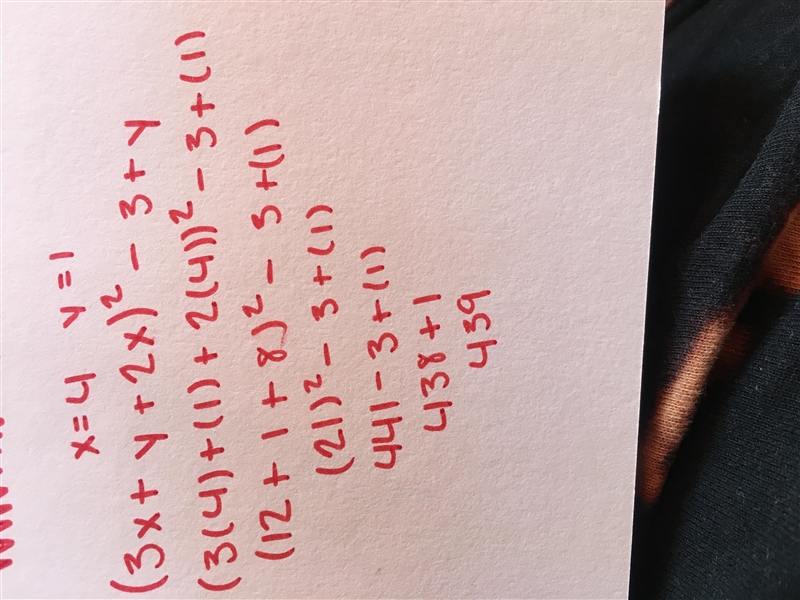 x=4 y=1
(3x+y+2x)² - 3+y
(3(4)+(1)+2(4))² - 3+(1)
(12+1+8)² - 3+(1)
(21)² - 3+(1)
441 - 3+(1)
438+1
439